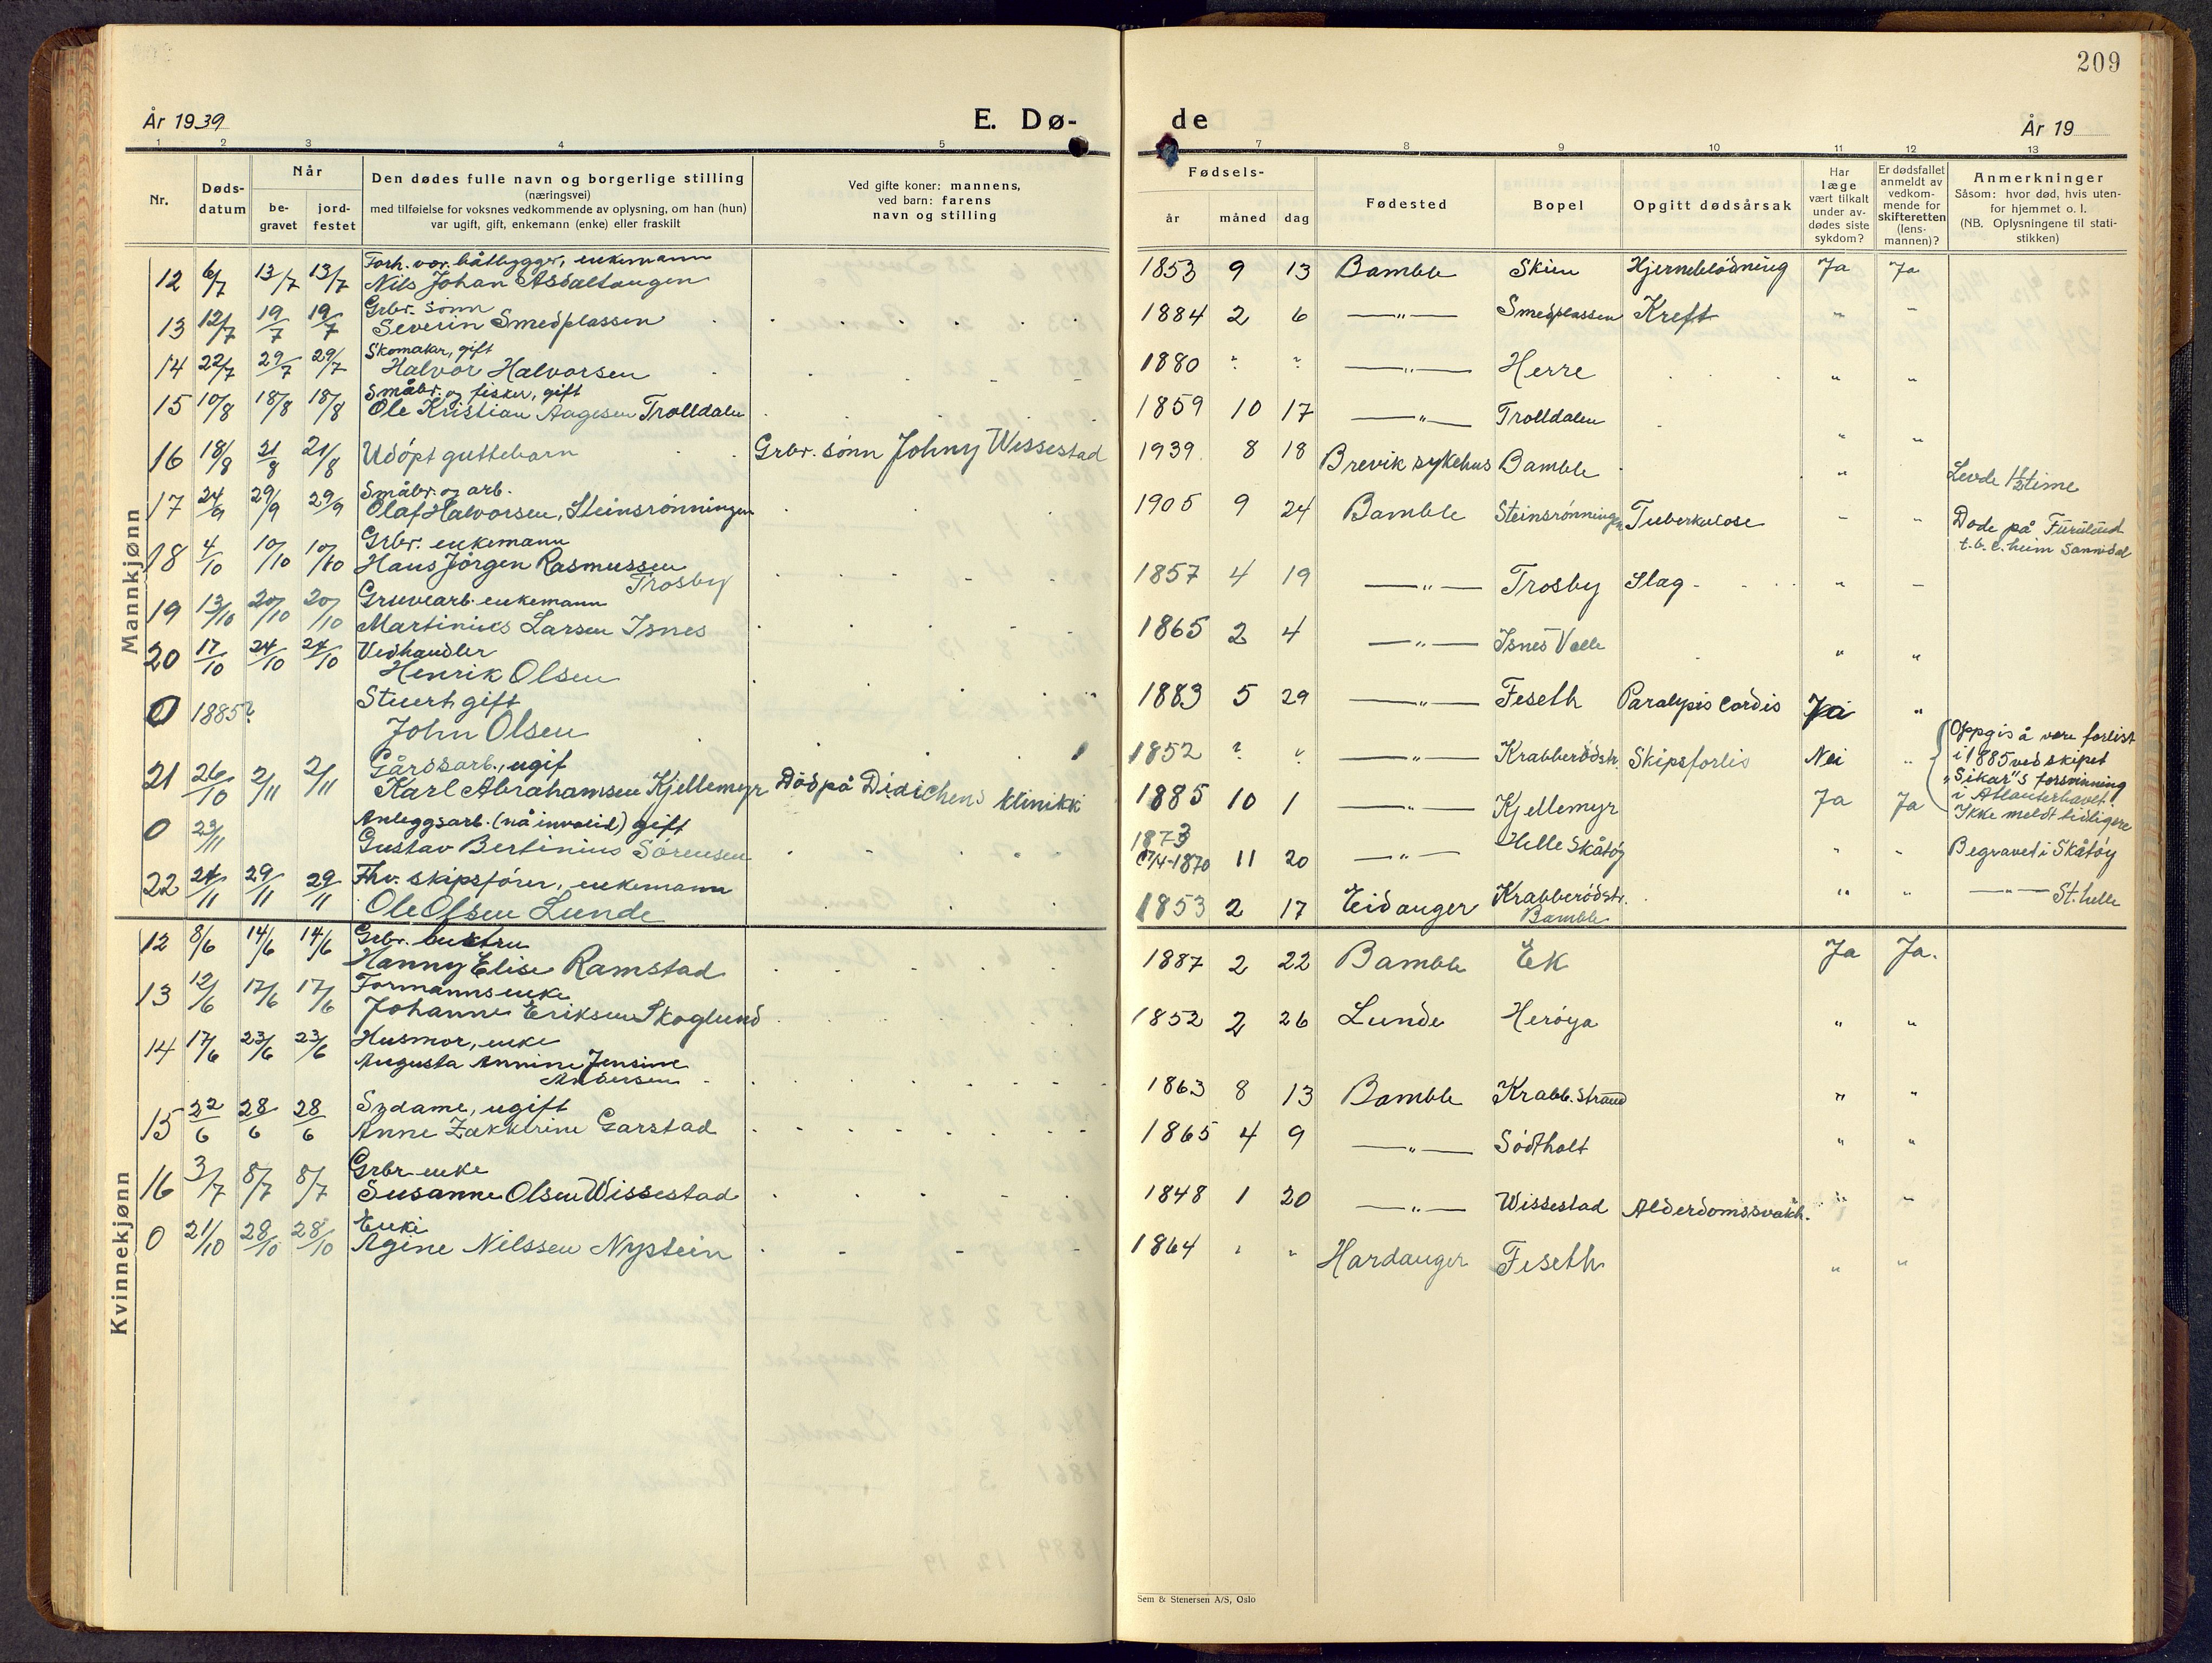 209
År 1939
E. Dø-
de
År 19
1 2 3 4 5 7 8 9 10 11 12 13
Nr.
Døds-
datum
Når
be-
gravet
jord-
festet
Den dødes fulle navn og borgerlige stilling
(næringsvei)
med tilføielse for voksnes vedkommende av oplysning, om han (hun)
var ugift, gift, enkemann (enke) eller fraskilt
Ved gifte koner: mannens,
ved barn: farens
navn og stilling
Fødsels-
år måned dag
Fødested
Bopel
Opgitt dødsårsak
Har
læge
vært tilkalt
under av-
dødes siste
sykdom?
Er dødsfallet
anmeldt av
vedkom-
mende for
skifteretten
(lens-
mannen)?
Anmerkninger
Såsom: hvor død, hvis uten-
for hjemmet o. l.
(NB. Oplysningene til stati-
stikken)
Mannkjønn
Forh. vor. båtbygger, enkemann
12 6/7 13/7 13/7 Nils Johan Asdaltangen 1853 9 13 Bamble Skien Hjerneblødning Ja Ja
Grbr. sønn
13 12/7 19/7 19/7 Severin Smedplassen 1884 2 6 —"— Smedplassen Kreft " "
Skomaker, gift
14 22/7 29/7 29/7 Halvor Halvorsen 1880 ? ? —"— Herre " "
Småbr. og fisker, gift
15 10/8 18/8 18/8 Ole Kristian Aagesen Trolldalen 1859 10 17 —"— Trolldalen " "
16 18/8 21/8 21/8 Udöpt guttebarn Grbr. sønn Johny Wissestad 1939 8 18 Brevik sykehus Bamble " Levde 1½ time
Småbr. og arb.
17 24/9 29/9 29/9 Olaf Halvorsen, Steinsrønningen 1905 9 24 Bamble Steinsrønningen Tuberkulose " " Døde på Furulund
t.b.c. heim Sannidal
Grbr. enkemann
18 4/10 10/10 10/10 Hans Jörgen Rasmussen 1857 4 19 —"— Trosby Slag " "
Trosby
Gruvearb. enkemann
19 13/10 20/10 20/10 Martinius Larsen Isnes 1865 2 4 —"— Isnes Valle " "
Vedhandler
20 17/10 24/10 24/10 Henrik Olsen 1883 5 29 —"— Feseth Paralysis cordis Ja "
Stuert gift
0 1885? John Olsen 1852 ? " —"— Krabberödstr. Skipsforlis Nei " Oppgis å være forlist
i 1885 ved skipet
"Sikar"s forsvinning
i Atlanterhavet.
Ikke meldt tidligere
Gårdsarb., ugif
21 26/10 2/11 2/11 Karl Abrahamsen Kjellemyr Död på Didichens klinikk 1885 10 1 —"— Kjellemyr Ja Ja
Anleggsarb. (nå invalid) gift
0 23/11 Gustav Bertinius Sörensen 1873 11 20 —"— Helle Skåtøy " " Begravet i Skåtøy
Fhv. skipsfører, enkemann
22 24/11 29/11 29/11 Ole Olsen Lunde 1853 2 17 Eidanger Krabberödstr. " " —"— St. helle
Bamble
Kvinnekjønn
12 8/6 14/6 14/6 Hanny Elise Ramstad 1887 2 22 Bamble Ek Ja Ja.
Formannsenke
13 12/6 17/6 17/6 Johanne Eriksen Skoglund 1852 2 26 Lunde Herøya " "
Husmor, enke
14 17/6 23/6 23/6 Augusta Annine Jensine 1863 8 13 Bamble Krabb. strand " "
Andersen
Sydame, ugift
15 22/6 28/6 28/6 Anne Zakkirine Garstad 1865 4 9 —"— Södtholt " "
Grbr enke
16 3/7 8/7 8/7 Susanne Olsen Wissestad 1848 1 20 —"— Wissestad Alderdomssvakh. " "
Enke
0 21/10 28/10 28/10 Agine Nilssen Nystein 1864 " " Hardanger Feseth " "
Sem & Stenersen A/S, Oslo